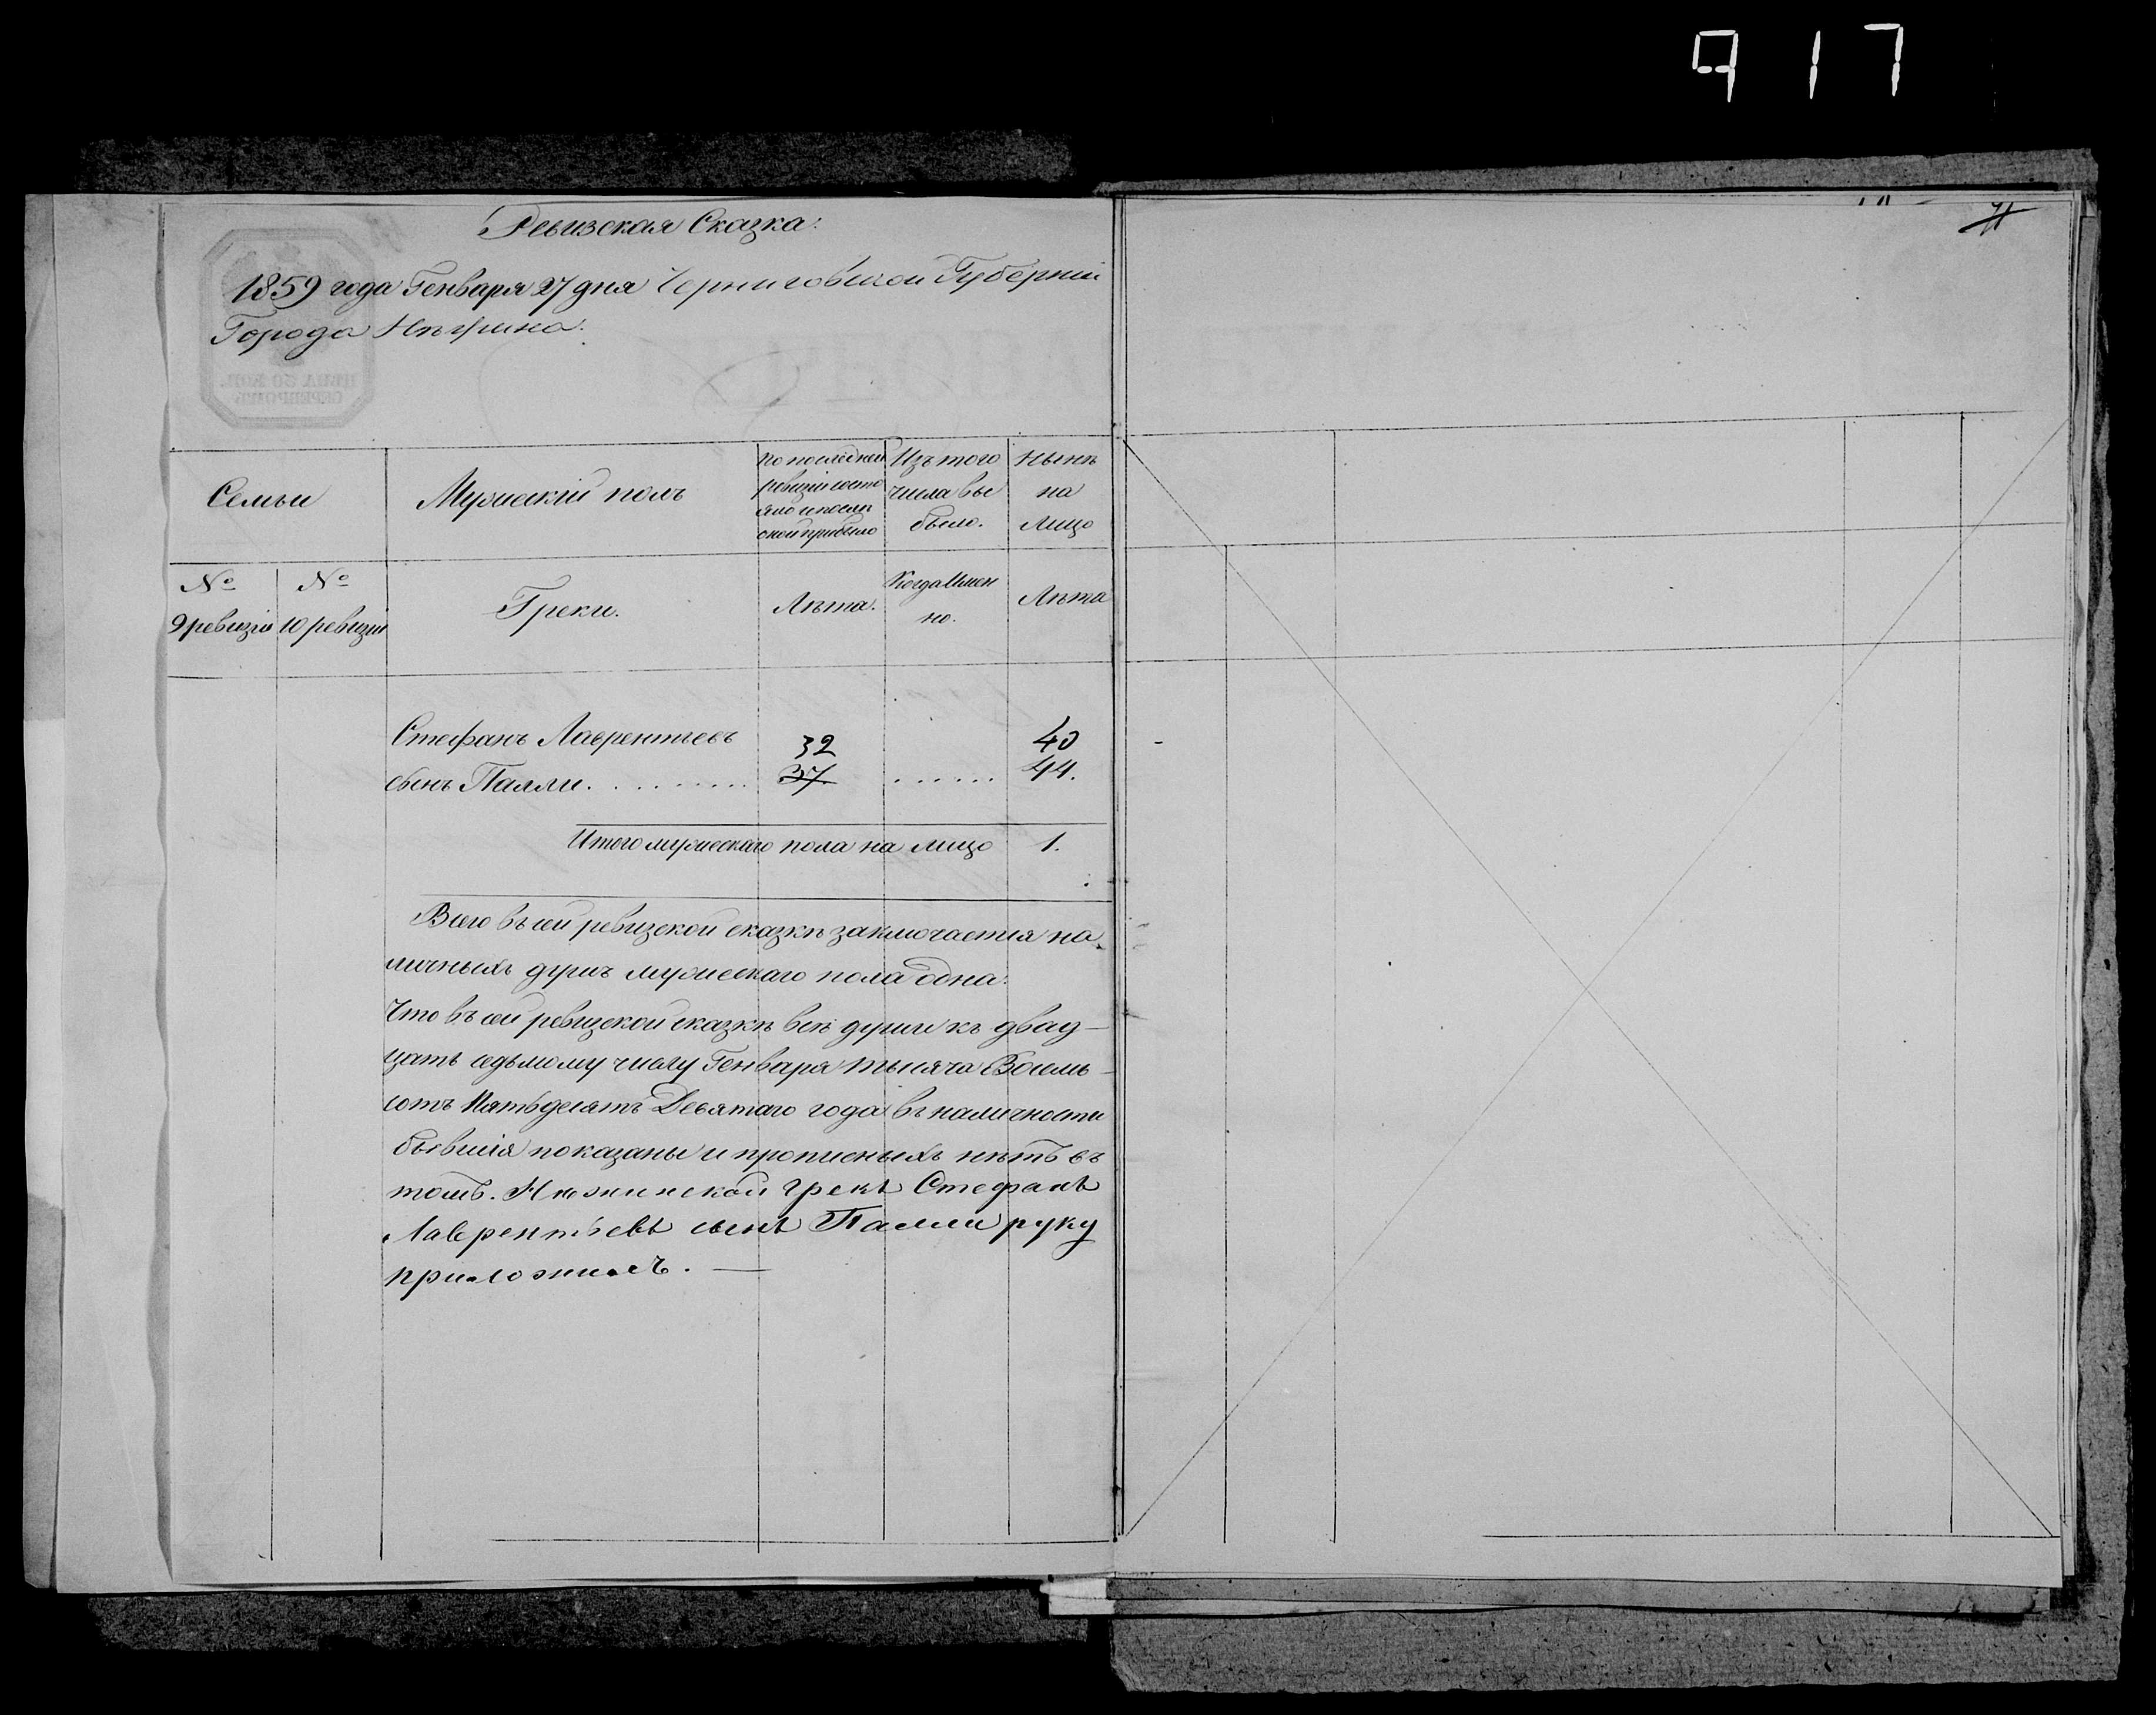 917
Ревизская Сказка:
1859 года Генваря 27 дня Черниговской Губернии
Города Нѣжина.
ЦѢНА 30 КОП.
СЕРЕБРОМЪ
Семьи
Мужескій полъ
По последней ревизіи состояло и после оной прибыло
Изъ того числа выбыло.
Нынѣ на лицо
№ 9 ревизіи
№ 10 ревизіи
Греки.
Лѣта.
Когда Именно.
Лѣта
Стефанъ Лаврентьевъ 32 40
сынъ Палли. 37 44.
Итого мужескаго пола на лицо 1.
Всего въ сей ревизской сказкѣ заключается на-
личныхъ душъ мужескаго пола одна.
Что въ сей ревизской сказкѣ всѣ души къ двад-
цать седьмому числу Генваря тысяча Восемь-
сотъ Пятьдесятъ Девятаго года въ наличности
бывшія показаны и прописныхъ нѣтъ въ
томъ. Нѣжинской грекъ Стефанъ
Лаврентьевъ сынъ Палли руку
приложилъ.